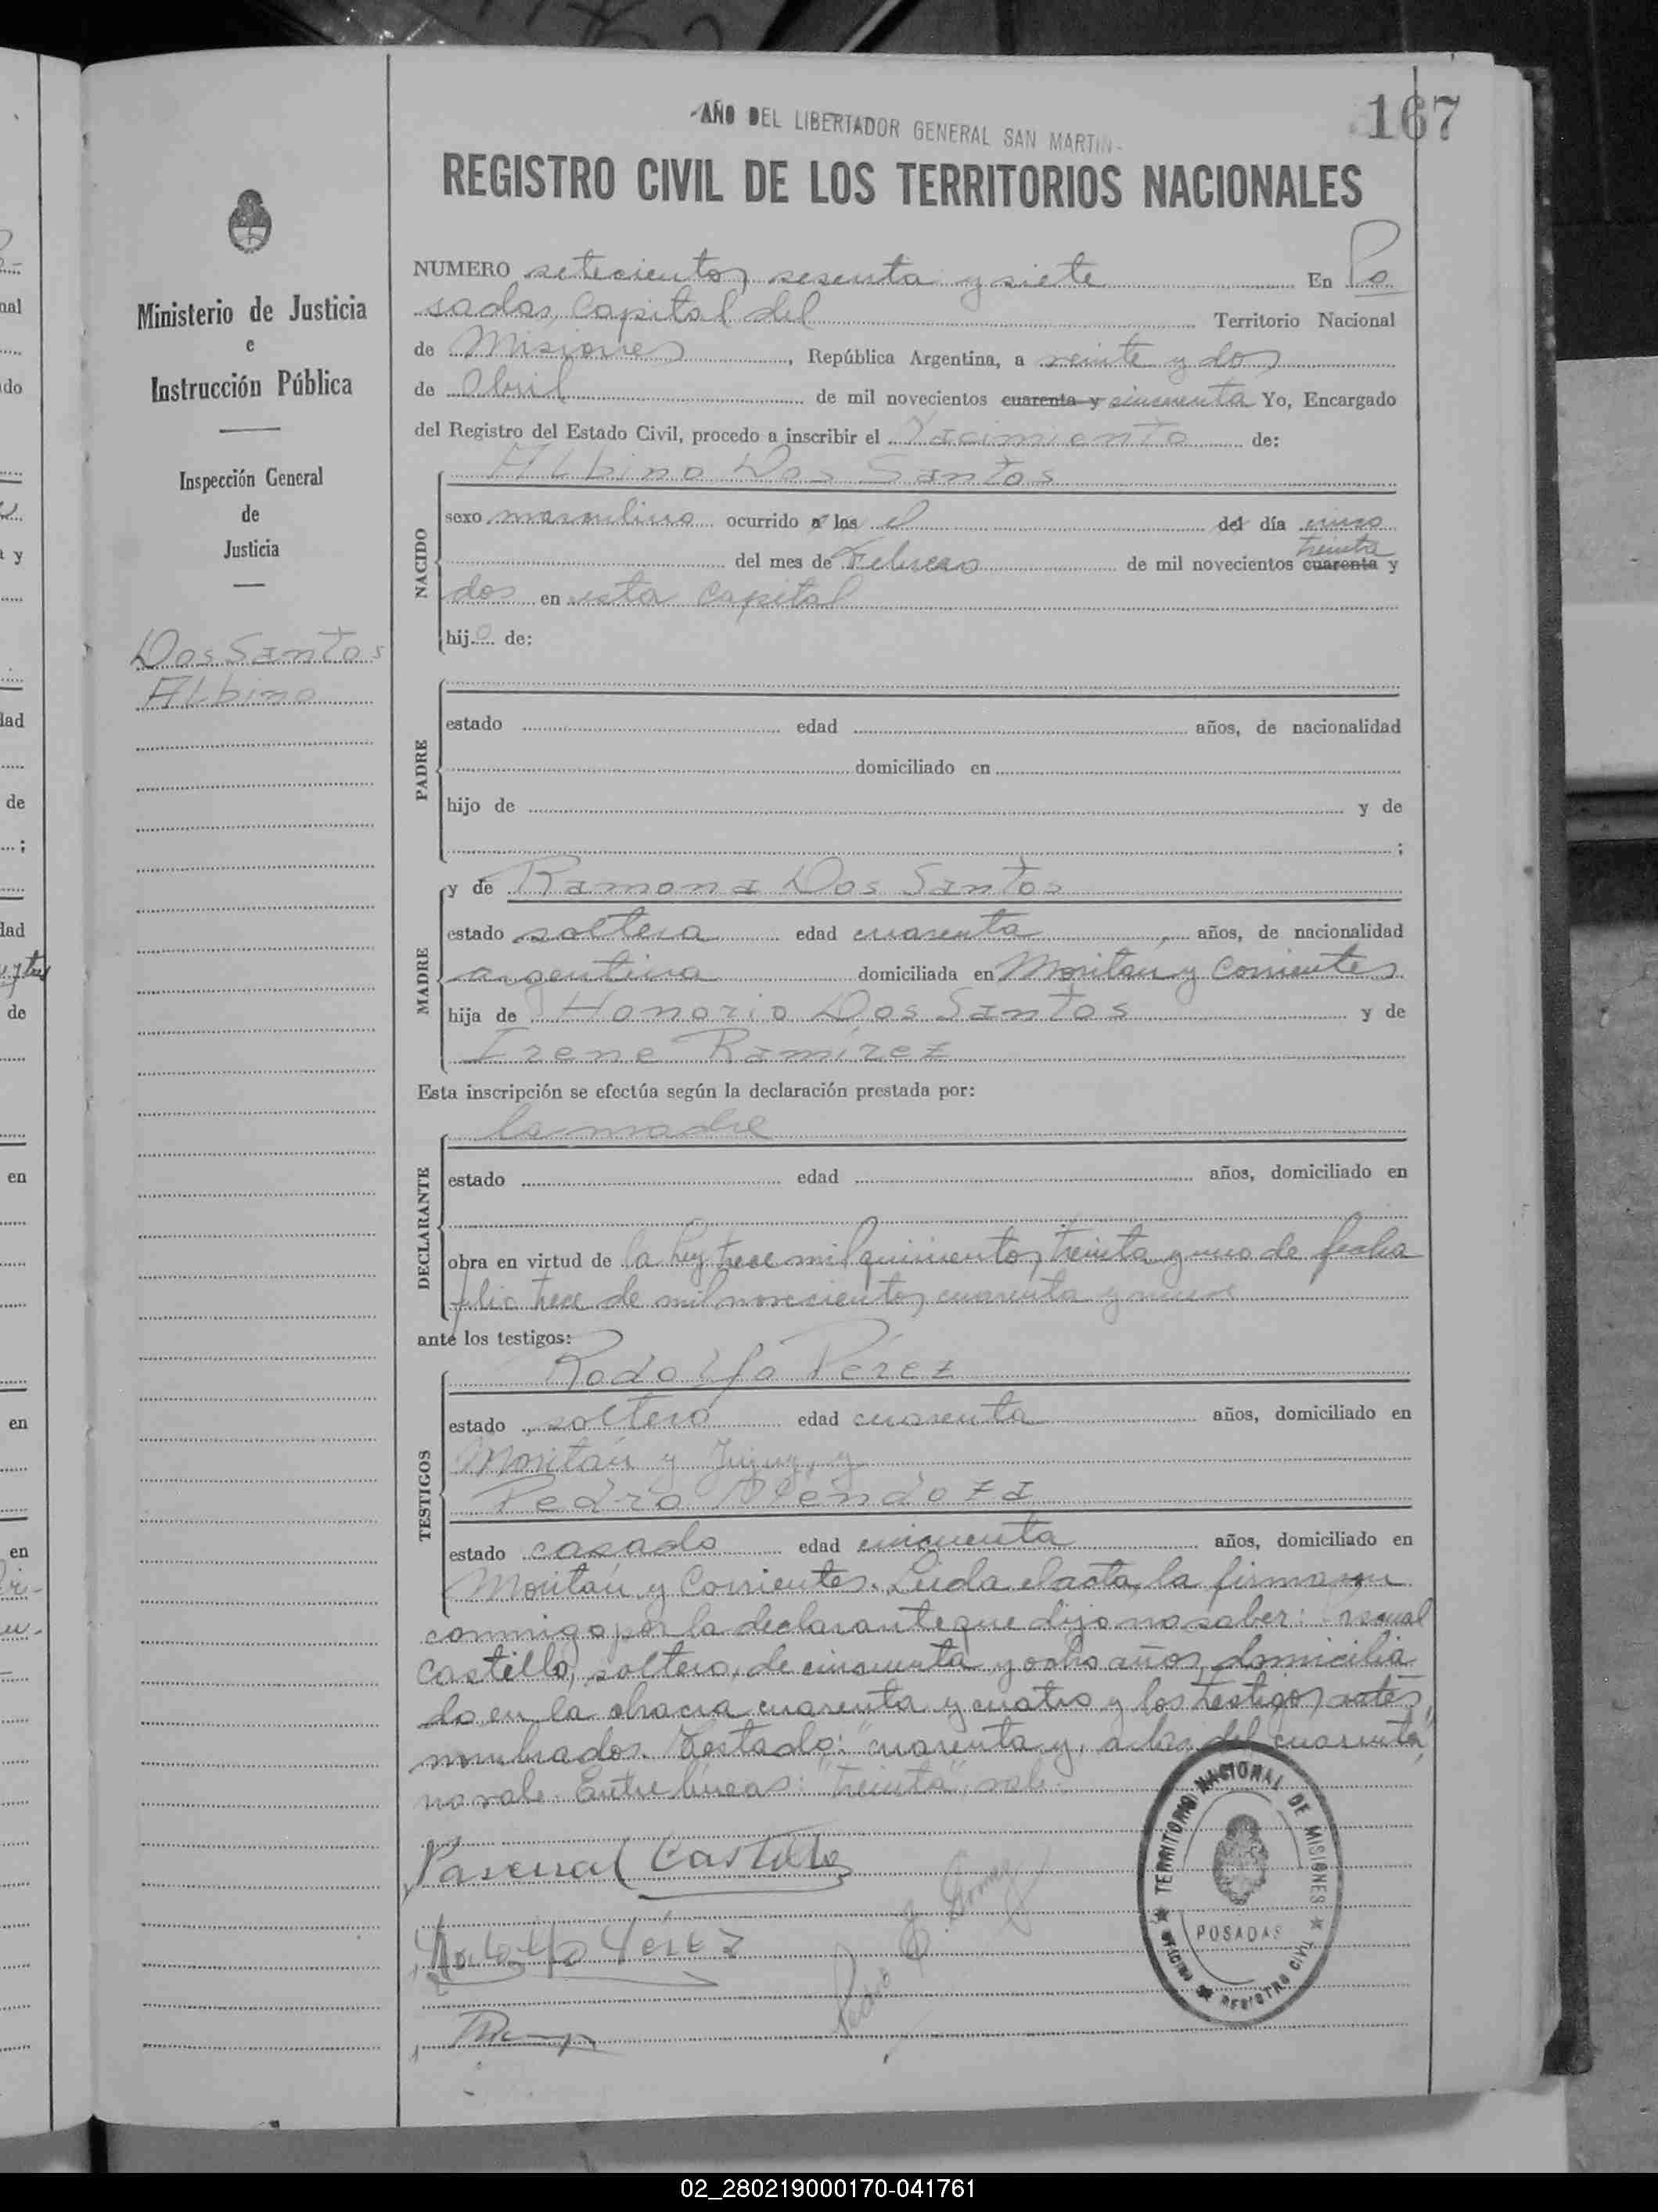 -AÑO DEL LIBERTADOR GENERAL SAN MARTIN-
167
REGISTRO CIVIL DE LOS TERRITORIOS NACIONALES
Ministerio de Justicia
e
Instrucción Pública
Inspección General
de
Justicia
Dos Santos
Albino
NUMERO setecientos sesenta y siete En Po
sadas, Capital del Territorio Nacional
de Misiones, República Argentina, a veinte y dos
de Abril de mil novecientos cuarenta y cincuenta Yo, Encargado
del Registro del Estado Civil, procedo a inscribir el Nacimiento de:
Albino Dos Santos
NACIDO
sexo masculino ocurrido a las el del día cinco
treinta
del mes de Febrero de mil novecientos cuarenta y
dos en esta Capital
hijo de:
PADRE
estado edad años, de nacionalidad
domiciliado en
hijo de y de
;
MADRE
y de Ramona Dos Santos
estado soltera edad cuarenta, años, de nacionalidad
argentina domiciliada en Moritán y Corrientes
hija de Honorio Dos Santos y de
Irene Ramírez
Esta inscripción se efectúa según la declaración prestada por:
DECLARANTE
la madre
estado edad años, domiciliado en
obra en virtud de la ley trece mil quinientos treinta y uno de fecha
julio trece de mil novecientos cuarenta y nueve
ante los testigos:
TESTIGOS
Rodolfo Pérez
estado soltero edad cuarenta años, domiciliado en
Moritán y Jujuy, y
Pedro Mendoza
estado casado edad cincuenta años, domiciliado en
Moritán y Corrientes. Leida el acta, la firman
conmigo por la declarante que dijo no saber: Pascual
Castillo, soltero, de cincuenta y ocho años, domicilia
do en la chacra cuarenta y cuatro y los testigos antes
nombrados. Testado: "cuarenta y, a las del cuarenta"
no vale. Entre líneas: "treinta" vale.
Pascual Castillo
Rodolfo Pérez
Pedro
TERRITORIO NACIONAL DE MISIONES
POSADAS
REGISTRO CIVIL
02_280219000170-041761